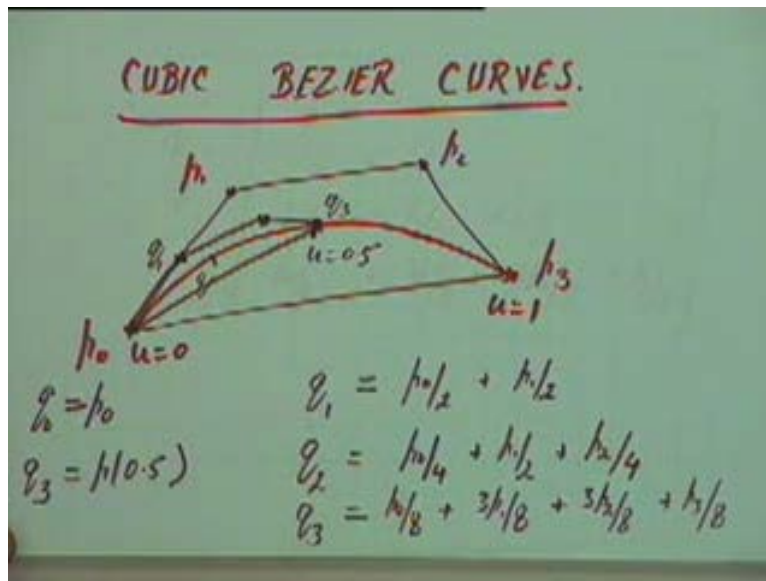 CUBIC BEZIER CURVES.
p₁ p₂
q₁ q₃
q u=0.5 p₃
u=1
p₀ u=0
q₀ = p₀
q₁ = p₀/2 + p₁/2
q₃ = p(0.5)
q₂ = p₀/4 + p₁/2 + p₂/4
q₃ = p₀/8 + 3p₁/8 + 3p₂/8 + p₃/8